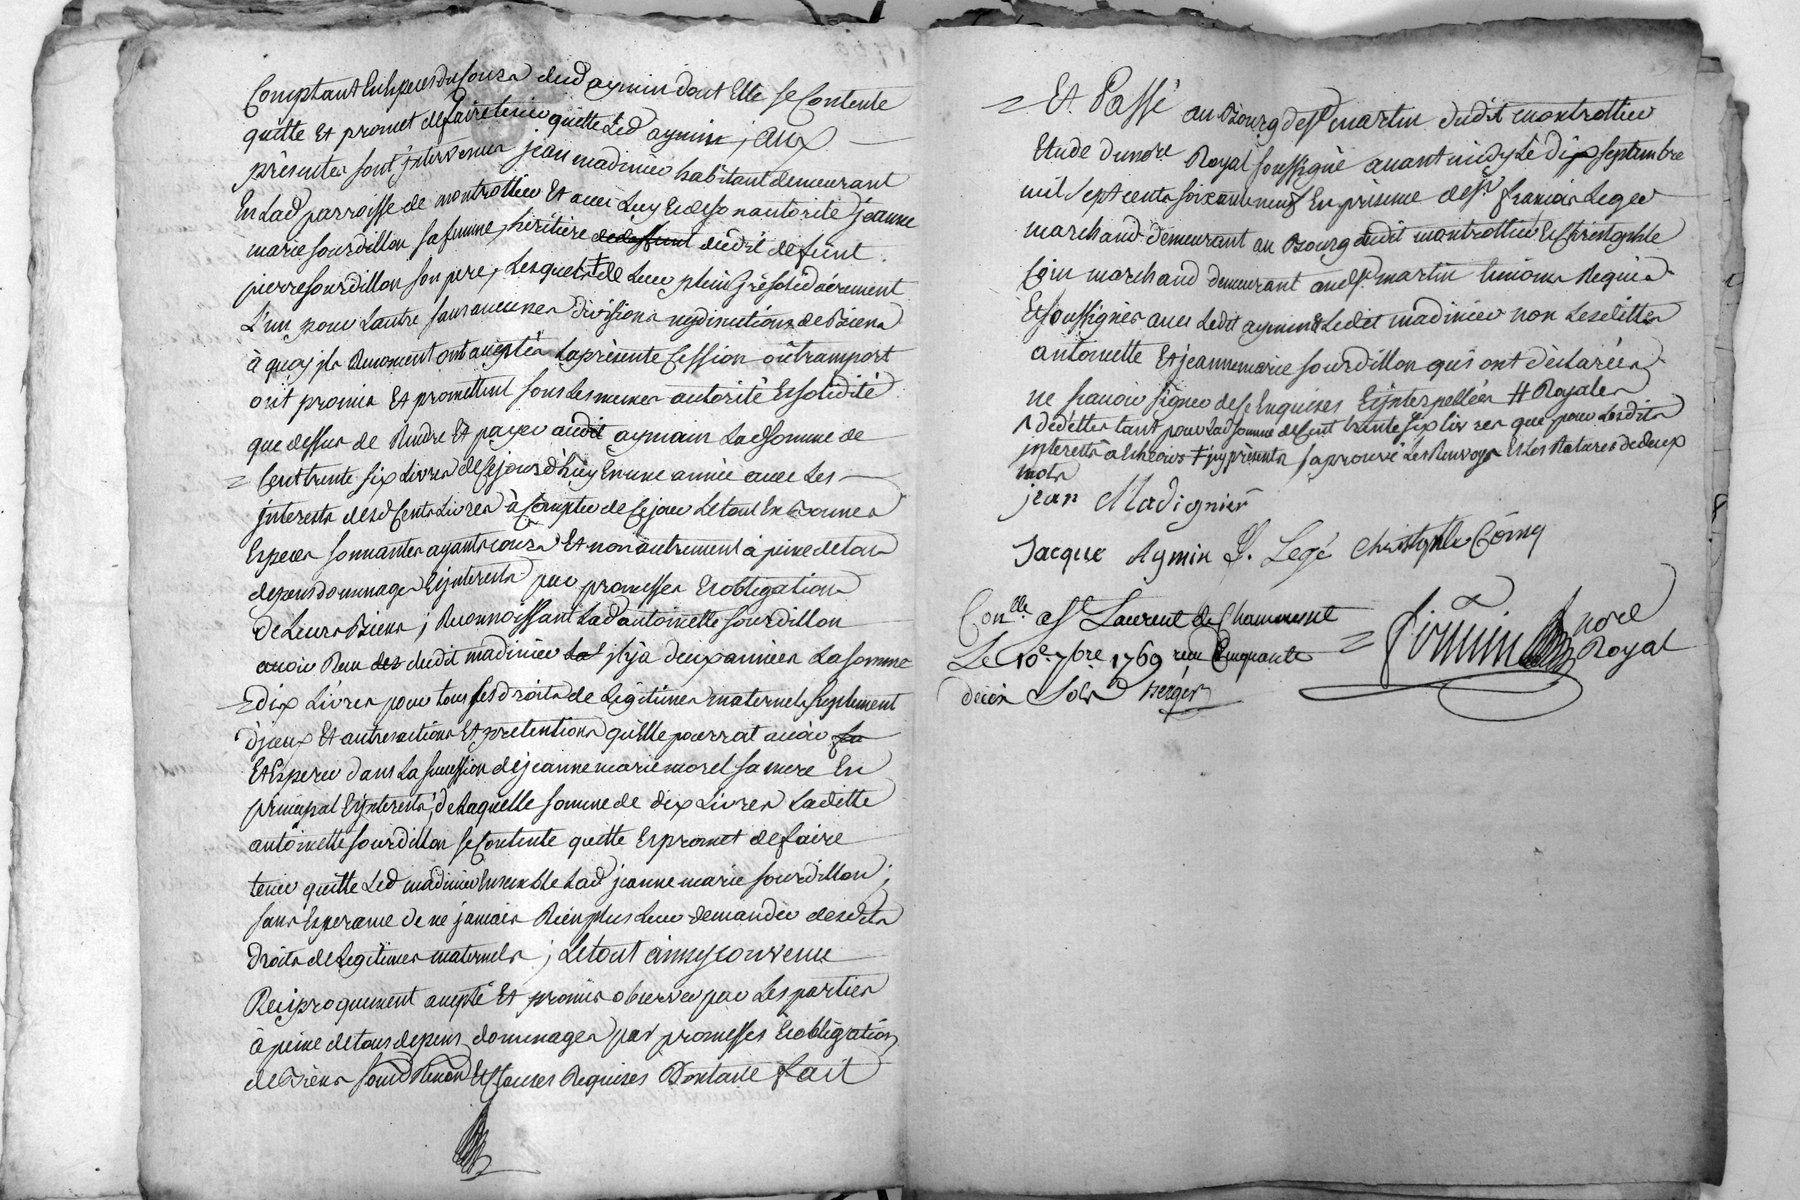 Comptant En Especes du Cours dud aymin dont Elle se Contente
quitte Et promet defaire tenir quitte Led aymin ; aux
présentes sont jntervenus jean madinier habitant demeurant
En Lad parroisse de montrottier Et avec Luy Et de son autorité jeanne
marie sourdillon sa femme, héritière dudit defunt
pierre sourdillon son pere, Lesquels de Leur plein Gré solidairement
L'un pour Lautre sans aucunes divisions ny discutions de Biens
à quoy ils Renoncent ont acceptés La présente Cession où transport
ont promis Et promettent sous Les memes autorité Et solidité
que dessus de Rendre Et payer audit aymain Ladsomme de
= Cent trente six Livres de Cejourd'huy En une année avec Les
jnterests desd Cents Livres à Compter de Cejour Le tout En Bonnes
Especes sonnantes ayants cours Et non autrement à peine de tous
depens dommages Et jnterests par promesses Et obligations
de Leurs Biens ; Reconnoissant Lad antoinette sourdillon
avoir Reçu des dudit madinier La jlyà deux années La somme
= dix Livres pour tous ses droits de Légitimes maternels suplement
d'jceux Et autres actions Et prétentions qu'Elle pourrat avoir
Et Esperer dans La succession de jeanne marie morel sa mere En
principal Et jnterests, de Laquelle somme de dix Livres Laditte
antoinette sourdillon se Contente quitte Et promet de faire
tenir quitte Led madinier Ensemble Lad jeanne marie sourdillon ;
sans Esperance de ne jamais Rien plus Leur demander desdits
droits de Legitimes maternels ; Le tout ainsy convenu
Reciproquement accepté Et promis observer par Les parties
à peine de tous depens dommages par promesses Et obligations
de Biens soumissions Renon Et Clauses Requises Dont acte fait
= Et Passé au Bourg de st martin dudit montrottier
Etude du nore Royal soussigné avant midy Le dix septembre
mil sept cents soixante neuf En présence de sr françois Leger
marchand demeurant au Bourg dudit montrottier Et Christophle
Coin marchand demeurant aud st martin témoins Requis
Et soussignés avec Ledit aymin & Ledit madinier non Lesdittes
antoinette Et jeanne marie sourdillon qui ont déclarées
ne scavoir signer de ce Enquises Et jnterpellées # Royales
^ dédittes tant pour Lad somme de Cent trente six Livres que pour Lesdits
jnterests à Encours ‡ jcy présents s aprouvé Les Renvoys Et Les Ratures de deux
mots
jean Madignier
Jacque Aymin f. Legé Christophle Coing
Conlle a St Laurent de Chamousset
Le 10e 7bre 1769 reçu Cinquante
deux sols
= firmin nore
Royal